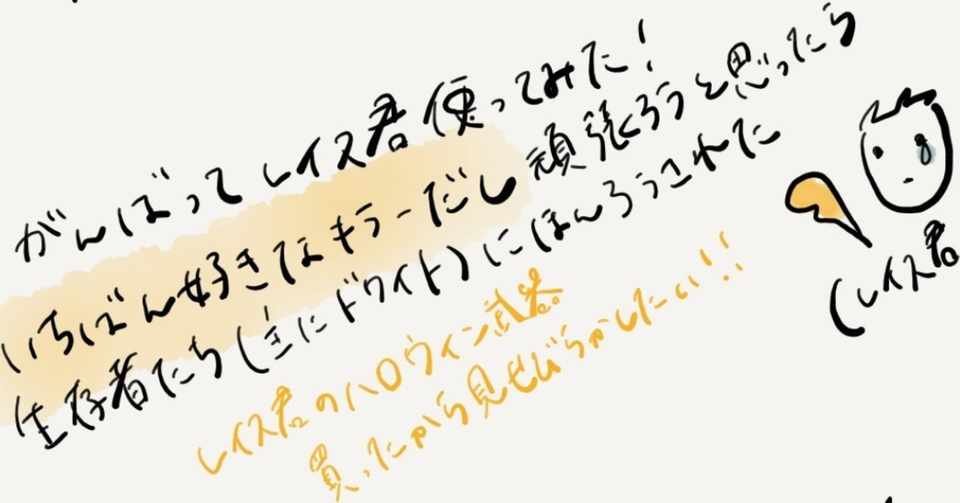 がんばってレイス君使ってみた!
いちばん好きなキラーだし頑張ろうと思ったら
生存者たち(主にドワイト)にほんろうされた
レイス君のハロウィン武器
買ったから見せびらかしたい!!
(レイス君